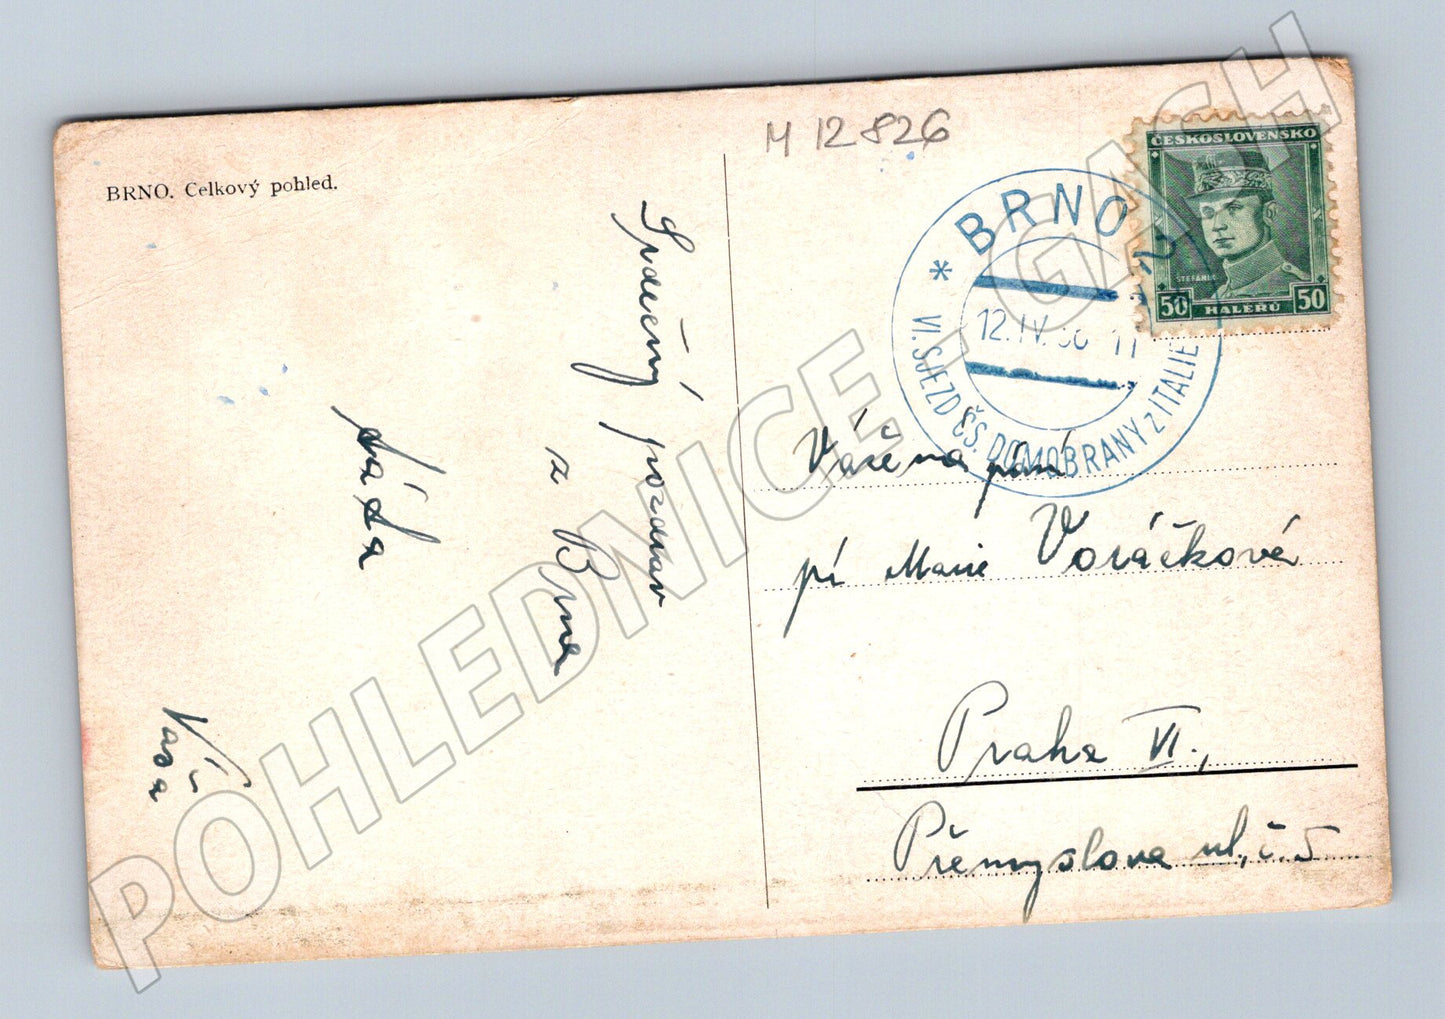 BRNO. Celkový pohled.
M 12826
ČESKOSLOVENSKO
ŠTEFÁNIK
50 HALÉŘŮ 50
* BRNO 2
12. IV.
VI. SJEZD ČS. DOMOBRANY z ITALIE
Srdečný pozdrav
z Brna
Váša
Vážená pání
pí Marie Voráčkové
Praha VI.,
Přemyslova ul, č. 5
POHLEDNICE - GASH